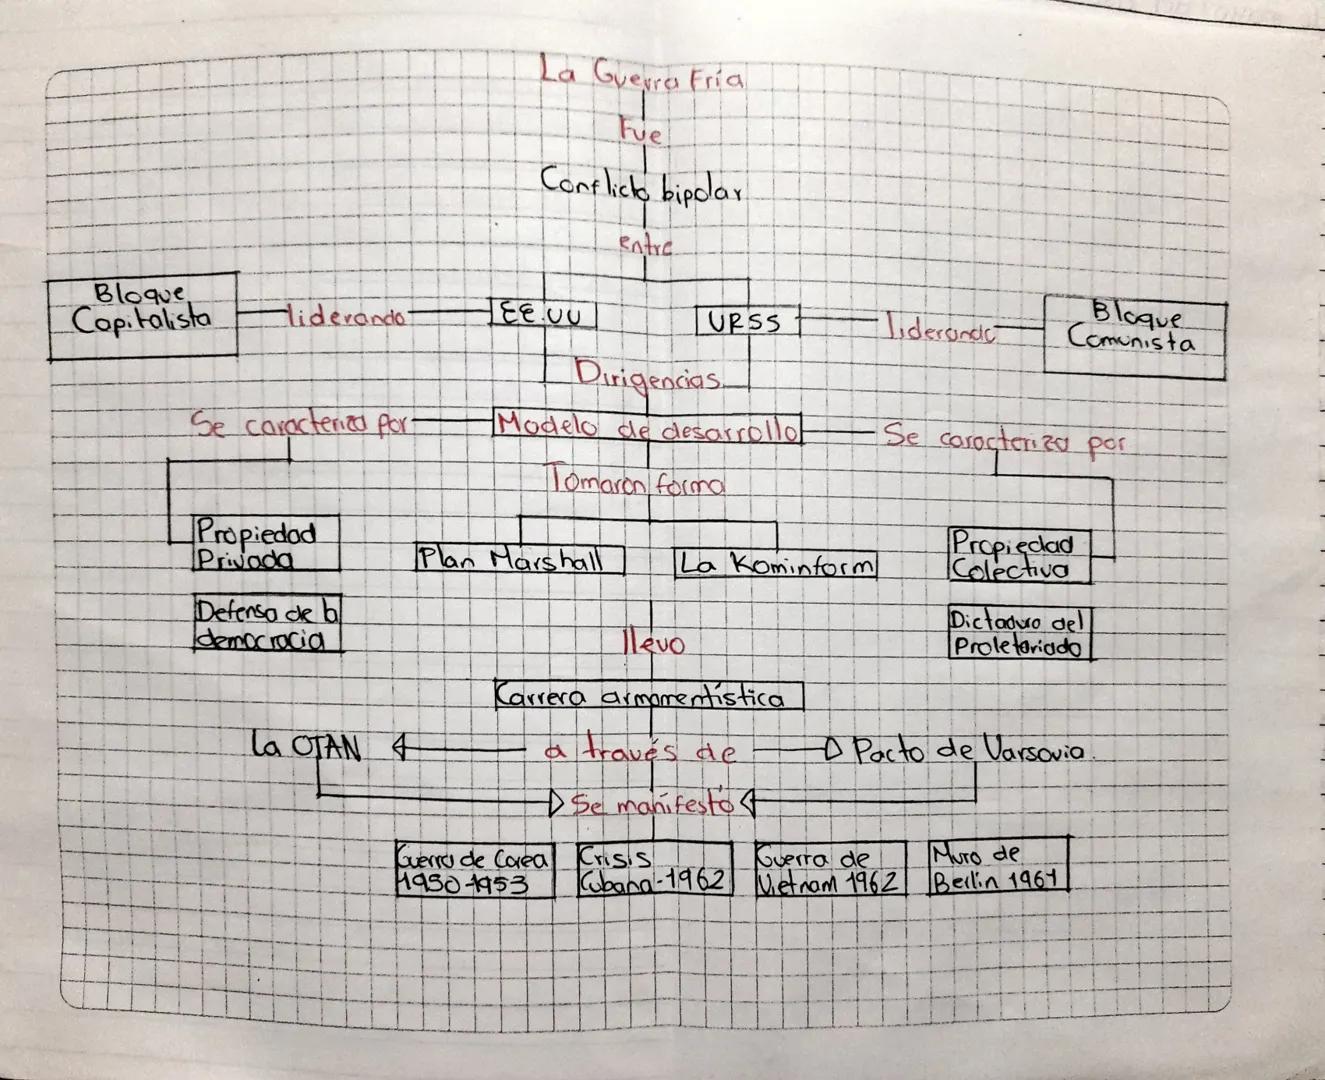 La Guerra Fría
Fue
Conflicto bipolar
entre
Bloque
Capitalista
liderando
EE.UU
URSS
liderando
Bloque
Comunista
Dirigencias
Se caracteriza por
Modelo de desarrollo
Se caracteriza por
Tomaron forma
Propiedad
Privada
Plan Marshall
La Kominform
Propiedad
Colectiva
Defensa de la
democracia
Dictadura del
Proletariado
llevo
Carrera armamentística
La OTAN
a través de
Pacto de Varsovia.
Se manifestó
Guerra de Corea
1950-1953
Crisis
Cubana-1962
Guerra de
Vietnam 1962
Muro de
Berlin 1961